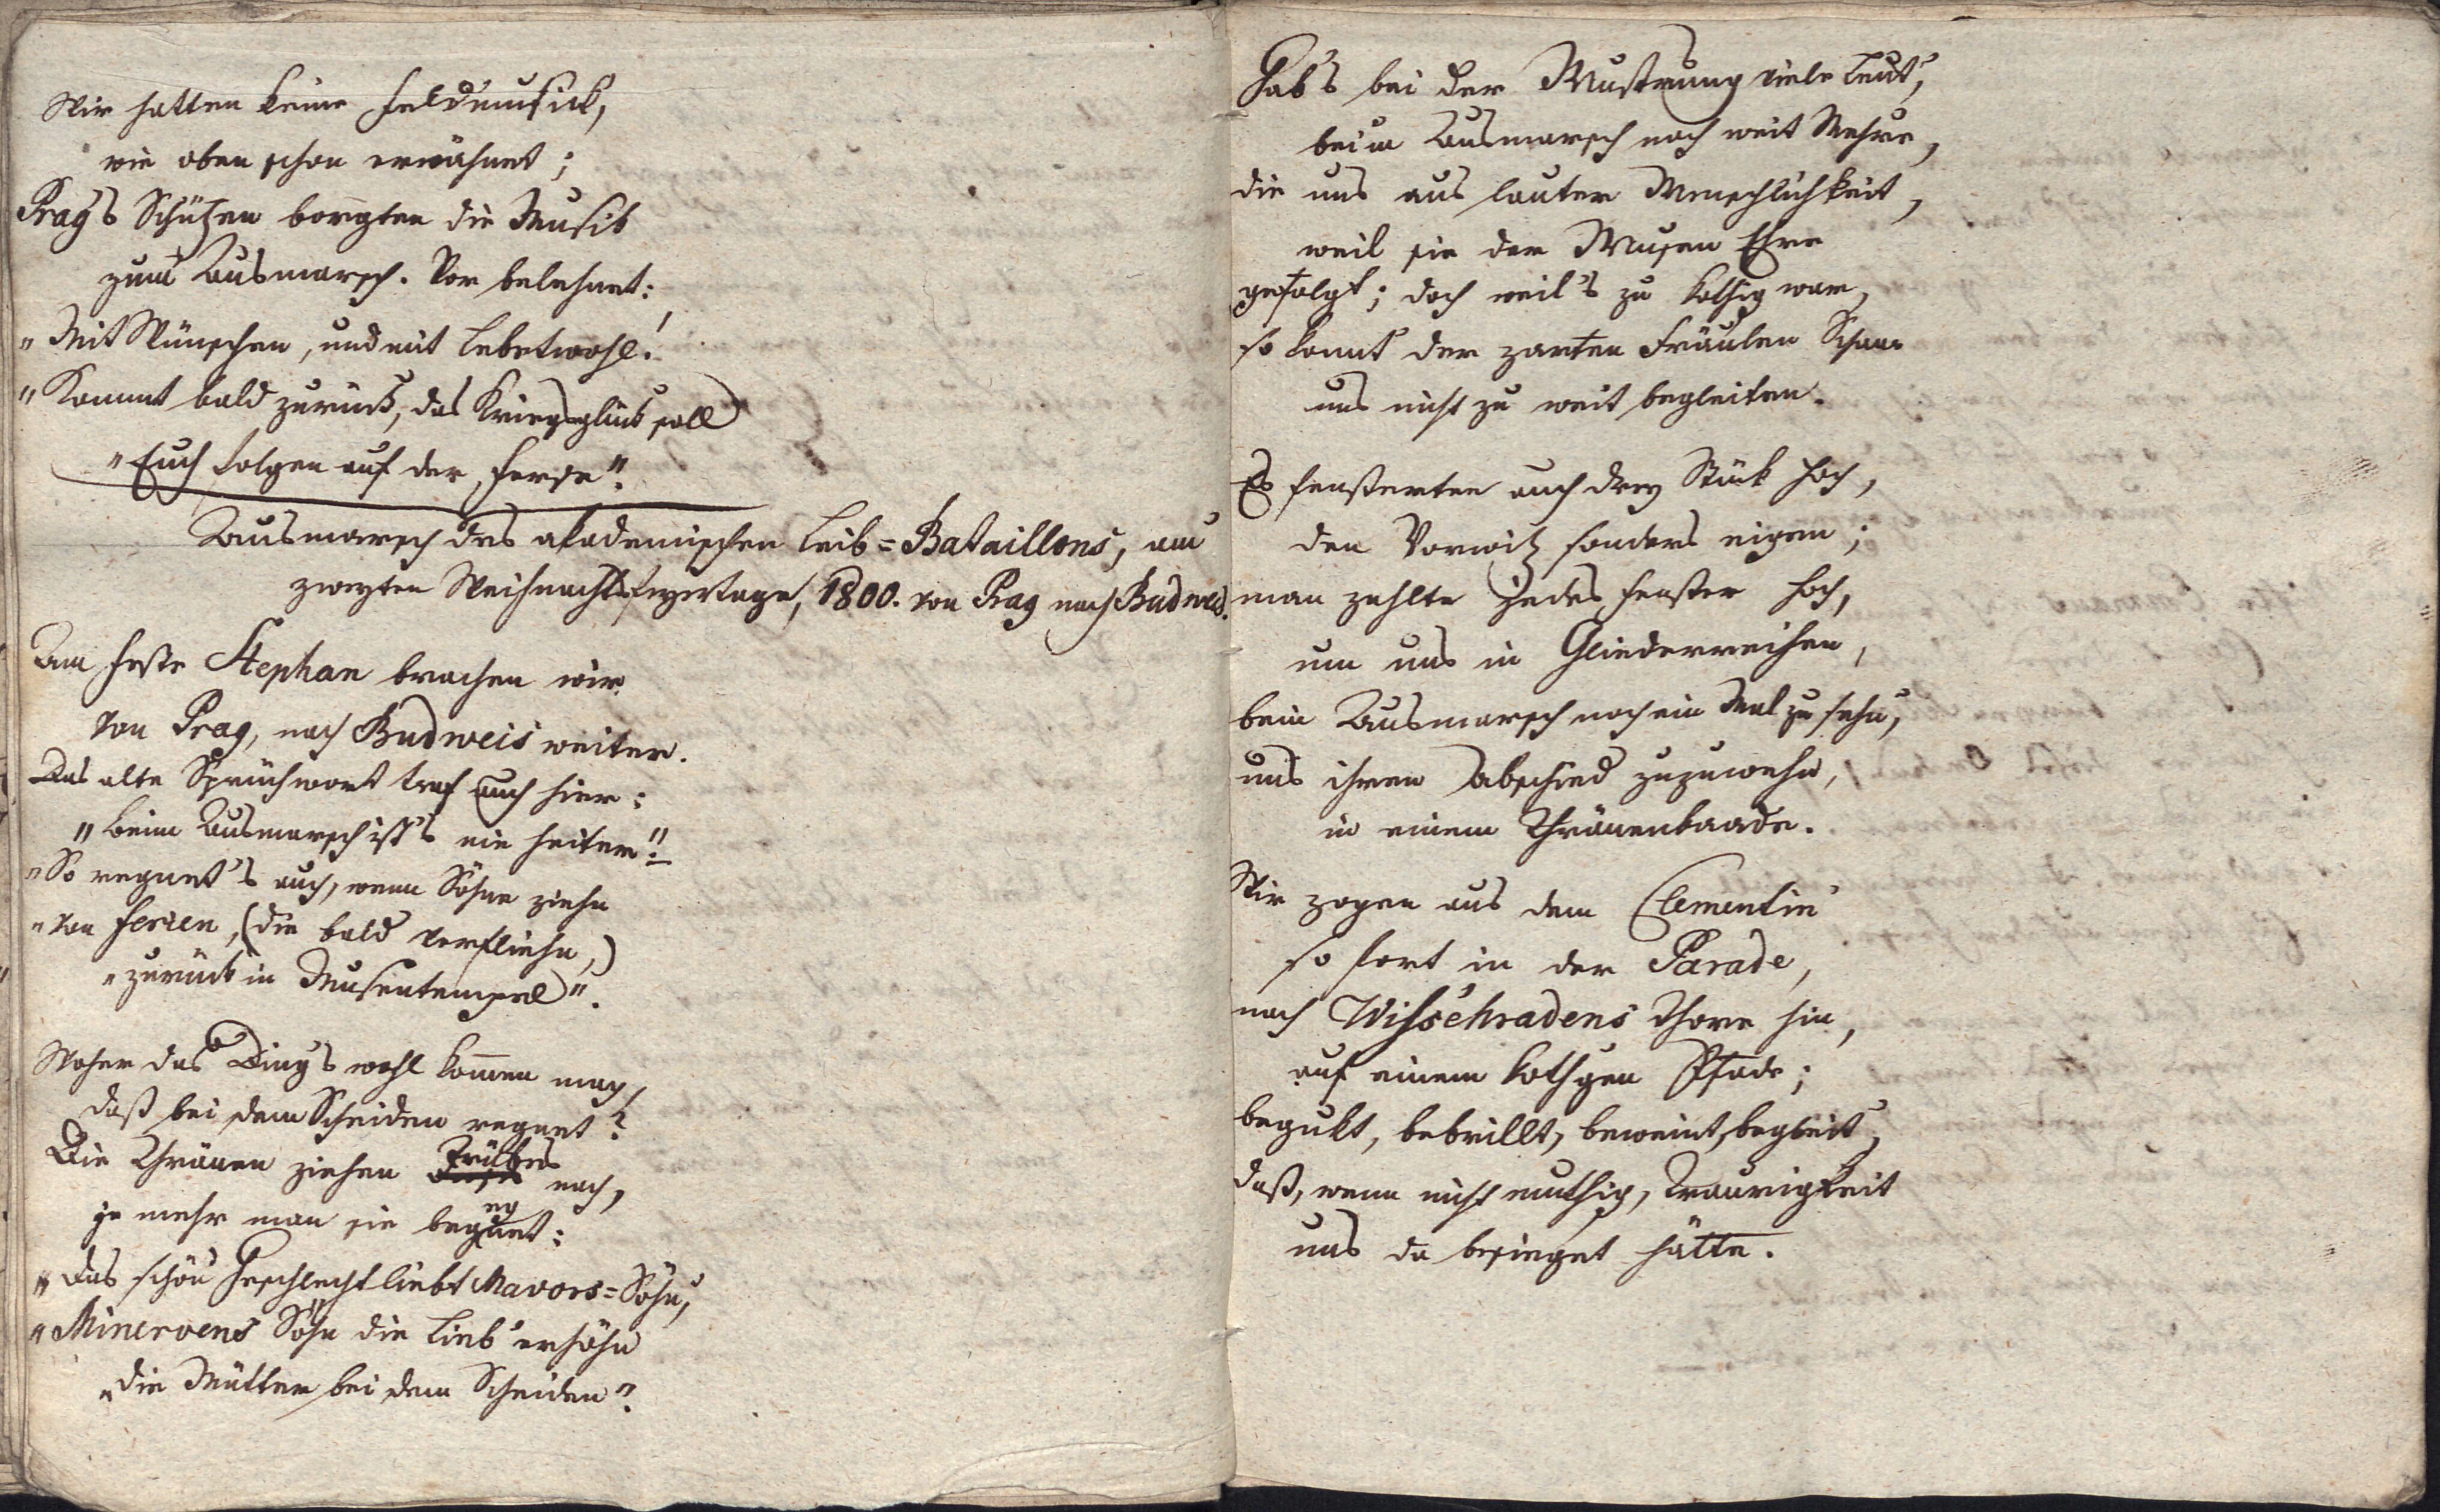 Wir hatten keine Feldmusick,
wie oben schon erwähnet;
Prag's Schützen borgten die Musik
zum Ausmarsch. Vor belehnet:
„Mit Wünschen, und mit Lebetwohl!
„Kommt bald zurück, das Kriegsglück soll
„Euch folgen auf der Ferse“.
Ausmarsch des akademischen Leib=Bataillons, am
zweyten Weihnachtsfeyertage, 1800. von Prag nach Budweis.
Am Feste Stephan brachen wir
von Prag, nach Budweis weiter.
Das alte Sprüchwort traf auch hier:
„beim Ausmarsch ist's nie heiter“.
„So regnet's auch, wenn Söhne ziehn
„von Ferien, (die bald verfliehn,)
„zurück in Musentempel“.
Woher das Ding's wohl kommen mag,
daß bei dem Scheiden regnet?
Die Thränen ziehen Trübes nach,
je mehr man sie begegnet:
„das schön' Geschlecht liebt Mavors=Söhn',
„Minervens Söhn' die Lieb' erhöhn
„die Mütter bei dem Scheiden“.
Gab's bei der Mustrung viele Leut',
beim Ausmarsch noch weit Mehre,
die uns aus lauter Menschlichkeit,
weil sie der Musen Ehre
gefolgt; doch weil's zu kothig war,
so konnt' der zarten Fräulen Schaar
uns nicht zu weit begleiten.
Es fensterten auch drey Stück hoch,
den Vorwitz sonders eigen;
man zahlte jedes Fenster hoch,
um uns in Gliederreihen,
beim Ausmarsch noch ein Mal zu sehn,
uns ihren Abschied zuzuwehn,
in einem Thränenbaade.
Wir zogen aus dem Clementin'
so fort in der Parade,
nach Wisschradens Thore hin,
auf einem kothgen Pfade;
begukt, bebrillt, beweint, begleit',
daß, wenn nicht muthig, Traurigkeit
uns da besieget hätte.